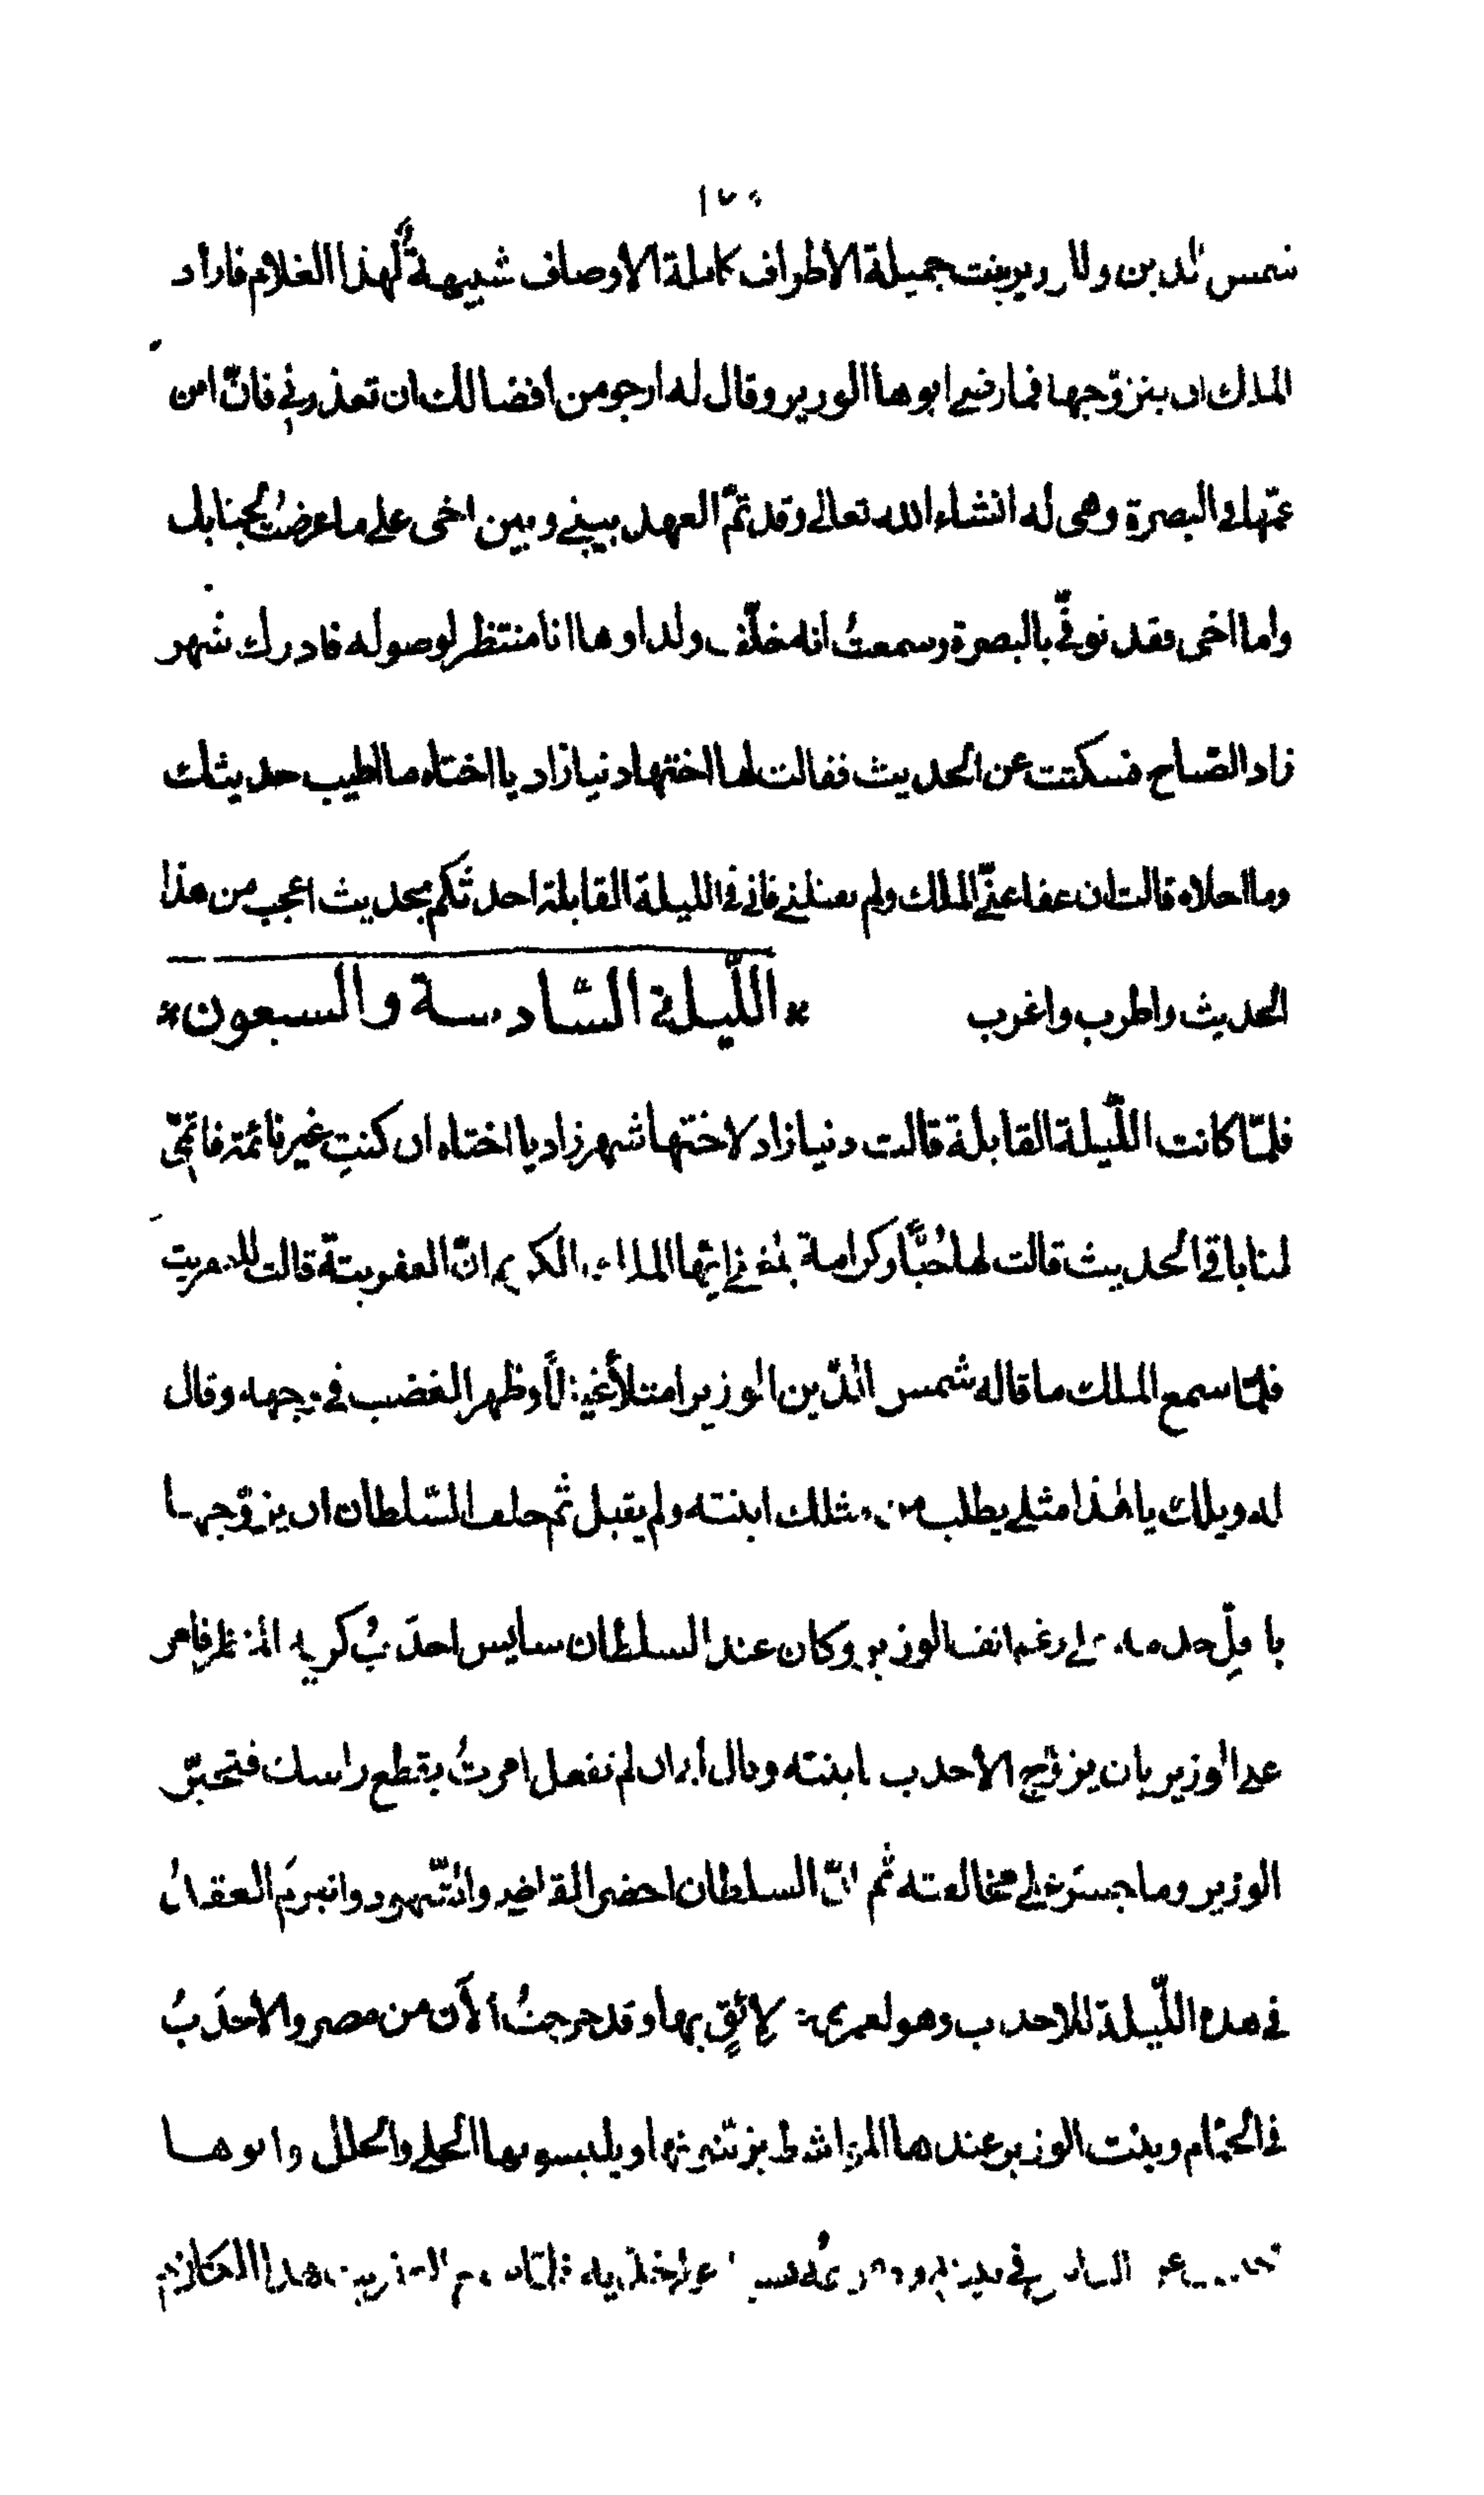 شمس الدين والوزير بنت جميلة الاطراف كاملة الاوصاف شبيهةٌ لهذا الغلام فاراد
الملك ان يتزوّجها فما رضي ابوها الوزير وقال له ارجو من افضالك ان تعذرني فانّ ابن
عمّها في البصرة وهى له انشاء الله تعالى وقد تمّ العهد بيني وبين اخى على ما عرضتُ لجنابك
واما اخى فقد توفّي بالبصرة وسمعتُ انه خلّف ولدا وها انا منتظر لوصوله فادرك شهر
زاد الصّباح فسكتت عن الحديث فقالت لها اختها دنيازاد يا اختاه ما اطيب حديثك
وما احلاه قالت ان عفا عنّي الملك ولم يقتلني فاني في الليلة القابلة احدثكم بحديث اعجب من هذا
الحديث واطرب واغرب * اللّيلة السّادسة والسبعون *
فلمّا كانت اللّيلة القابلة قالت دنيازاد لاختها شهرزاد يا اختاه ان كنتِ غير نائمة فاتمّي
لنا باقي الحديث قالت لها حُبًّا وكرامة بلغني ايّها الملك الكريم انّ العفريتة قالت للعفريت
فلمّا سمع الملك ما قاله شمس الدّين الوزير امتلأ غيظًا وظهر الغضب في وجهه وقال
له ويلك يا هٰذا مثلي يطلب من مثلك ابنته ولم يقبل ثم حلف السّلطان ان يزوّجها
باقلّ خدمه على رغم انف الوزير وكان عند السلطان سايس احدَبُ كريه المنظر فامر
على الوزير بان يزوّج الأحدب بابنته وقال ان لم تفعل امرتُ بقطع راسك فتحيّر
الوزير وما جسَرَ على مخالفته ثم انّ السلطان احضر القاضي والشّهود وانبرمَ العقدُ
في هذه اللّيلة للاحدب وهو لعمري لائقٍ بها وقد خرجتُ الآن من مصر والاحدَبُ
في الحمّام وبنت الوزير عندها المواشط يزيّنونها ويلبسوها الحلي والحلل وابوها
العفريت هذا الكلام